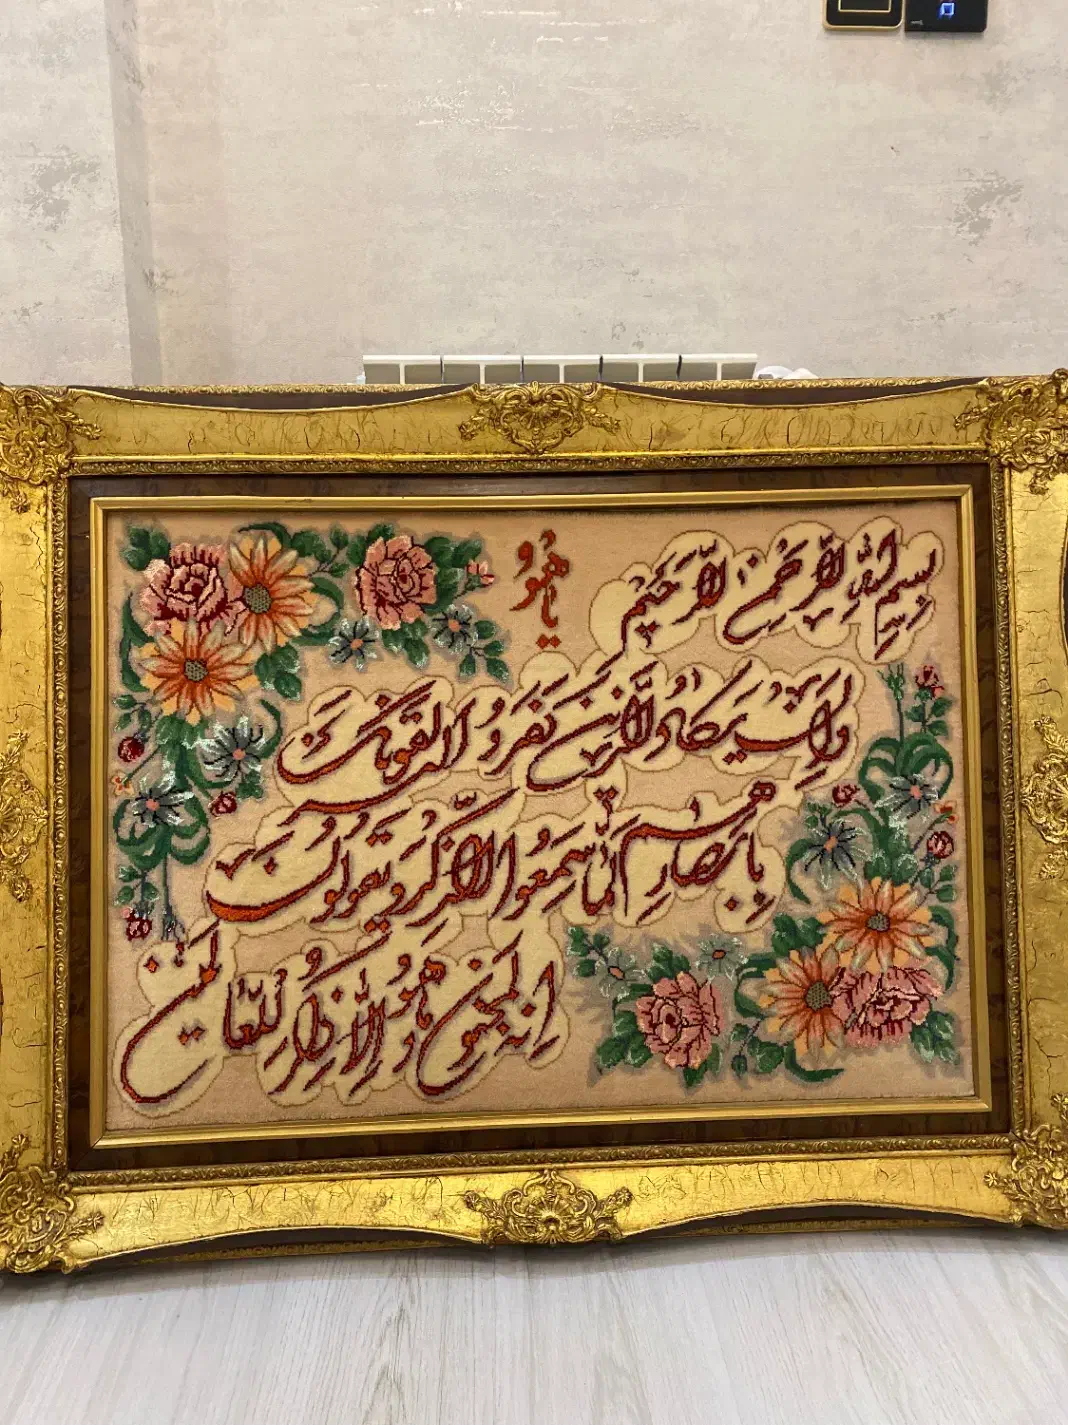 یا هو
بسم الله الرحمن الرحیم
وَاِن یَکادُ الَّذینَ کَفَرُوا لَیُزلِقُونَکَ
بِاَبصارِهِم لَمّا سَمِعُوا الذِّکرَ وَ یَقُولُونَ
اِنَّهُ لَمَجنُونٌ وَ ما هُوَ اِلّا ذِکرٌ لِلعالَمینَ